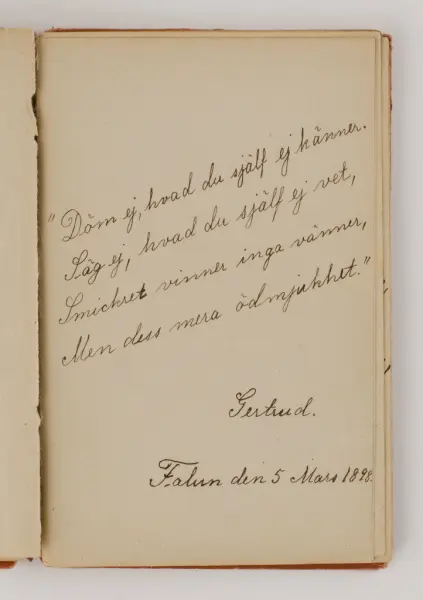 "Döm ej, hvad du själf ej känner.
Säg ej, hvad du själf ej vet,
Smickret vinner inga vänner,
Men dess mera ödmjukhet."
Gertrud.
Falun den 5 Mars 1898.